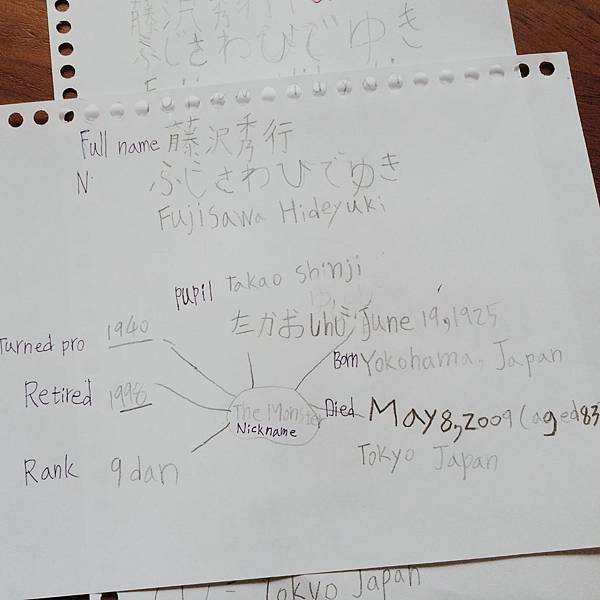 藤沢秀行
ふじさわひでゆき
Full name 藤沢秀行
N
ふじさわひでゆき
Fujisawa Hideyuki
pupil Takao Shinji
たかおしんじ
June 19, 1925
Turned pro 1940
Born Yokohama, Japan
Retired 1998
The Monster
Nickname
Died May 8, 2009 (aged 83
Rank 9 dan
Tokyo Japan
Tokyo Japan